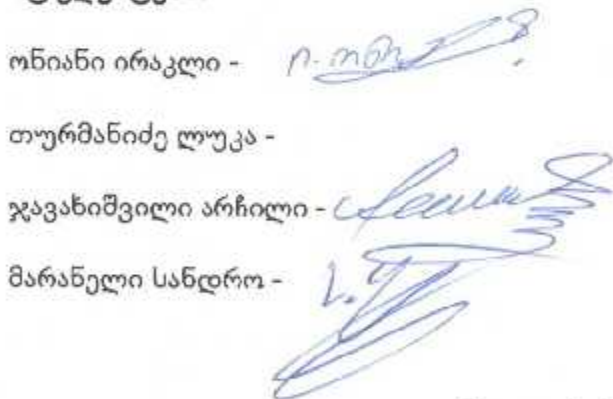 ონიანი ირაკლი -
თურმანიძე ლუკა -
ჯავახიშვილი არჩილი -
მარანელი სანდრო -